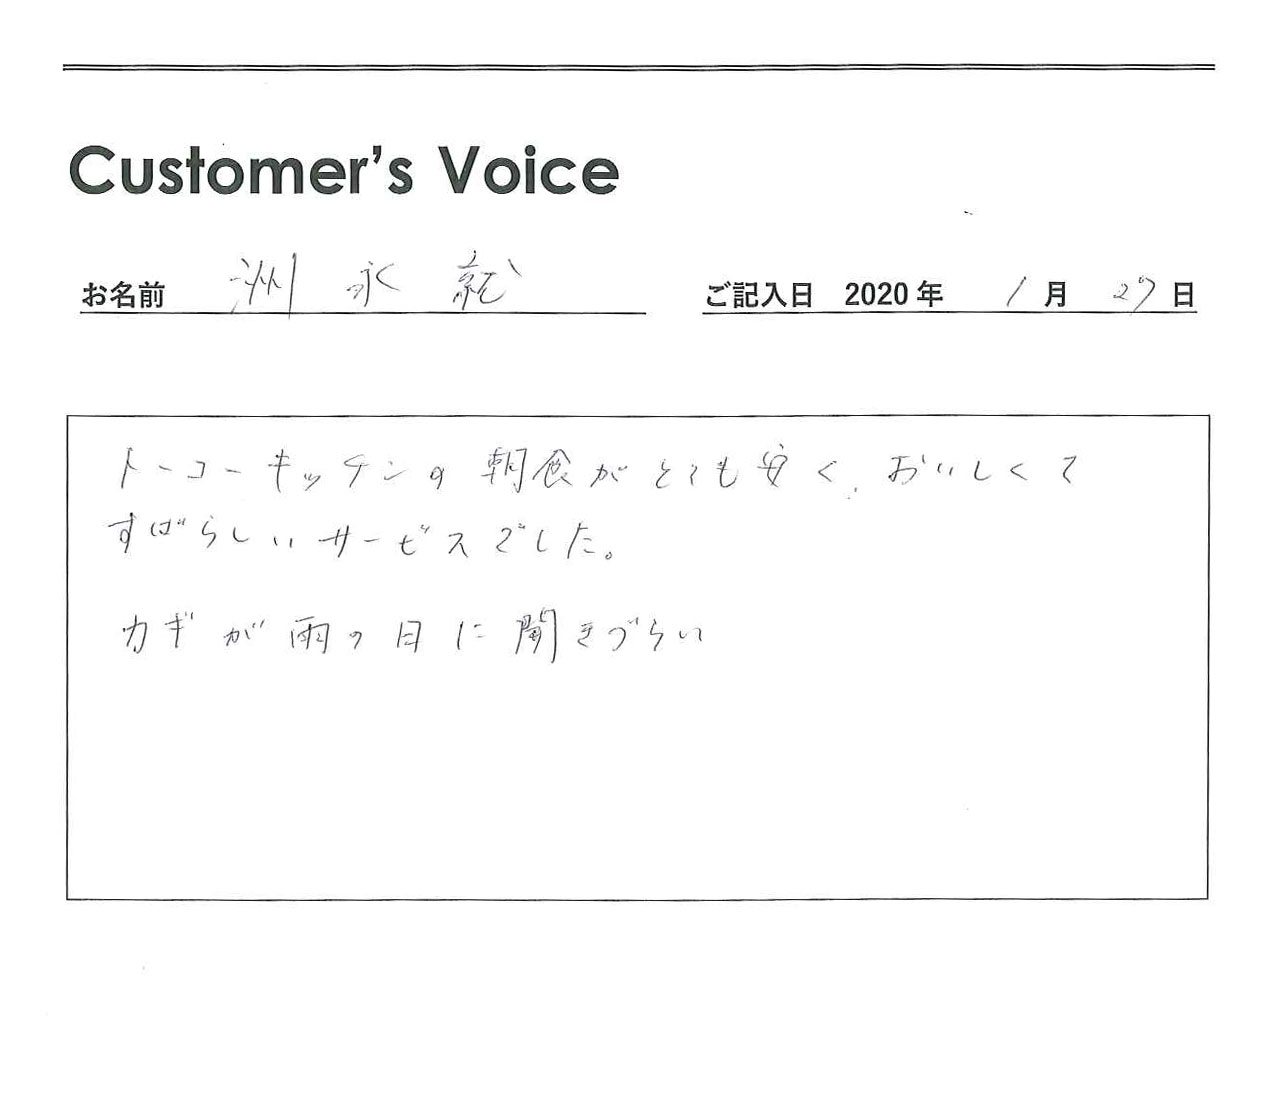 Customer's Voice
お名前 洲 永 就
ご記入日 2020年 1月 27日
トーコーキッチンの朝食がとても安く、おいしくて
すばらしいサービスでした。
カギが雨の日に開きづらい